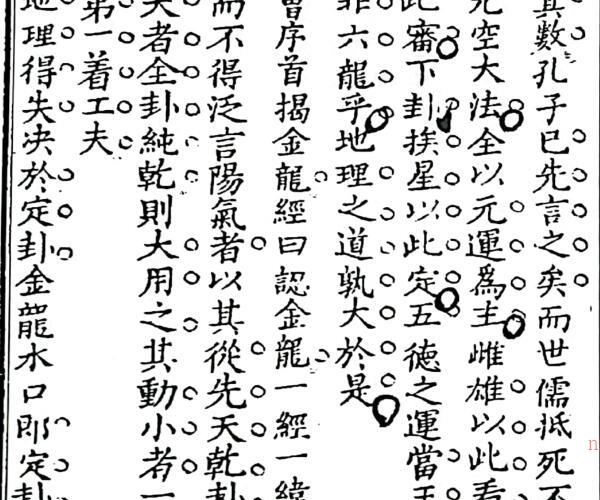 其數孔子已先言之矣而世儒抵死不
元空大法全以元運爲主雌雄以此看
此審下卦挨星以此定五德之運當王
非六龍乎地理之道孰大於是
曾序首揭金龍經曰認金龍一經一緯
而不得泛言陽氣者以其從先天乾卦
大者全卦純乾則大用之其動小者一
第一着工夫
地理得失决於定卦金龍水口郎定卦